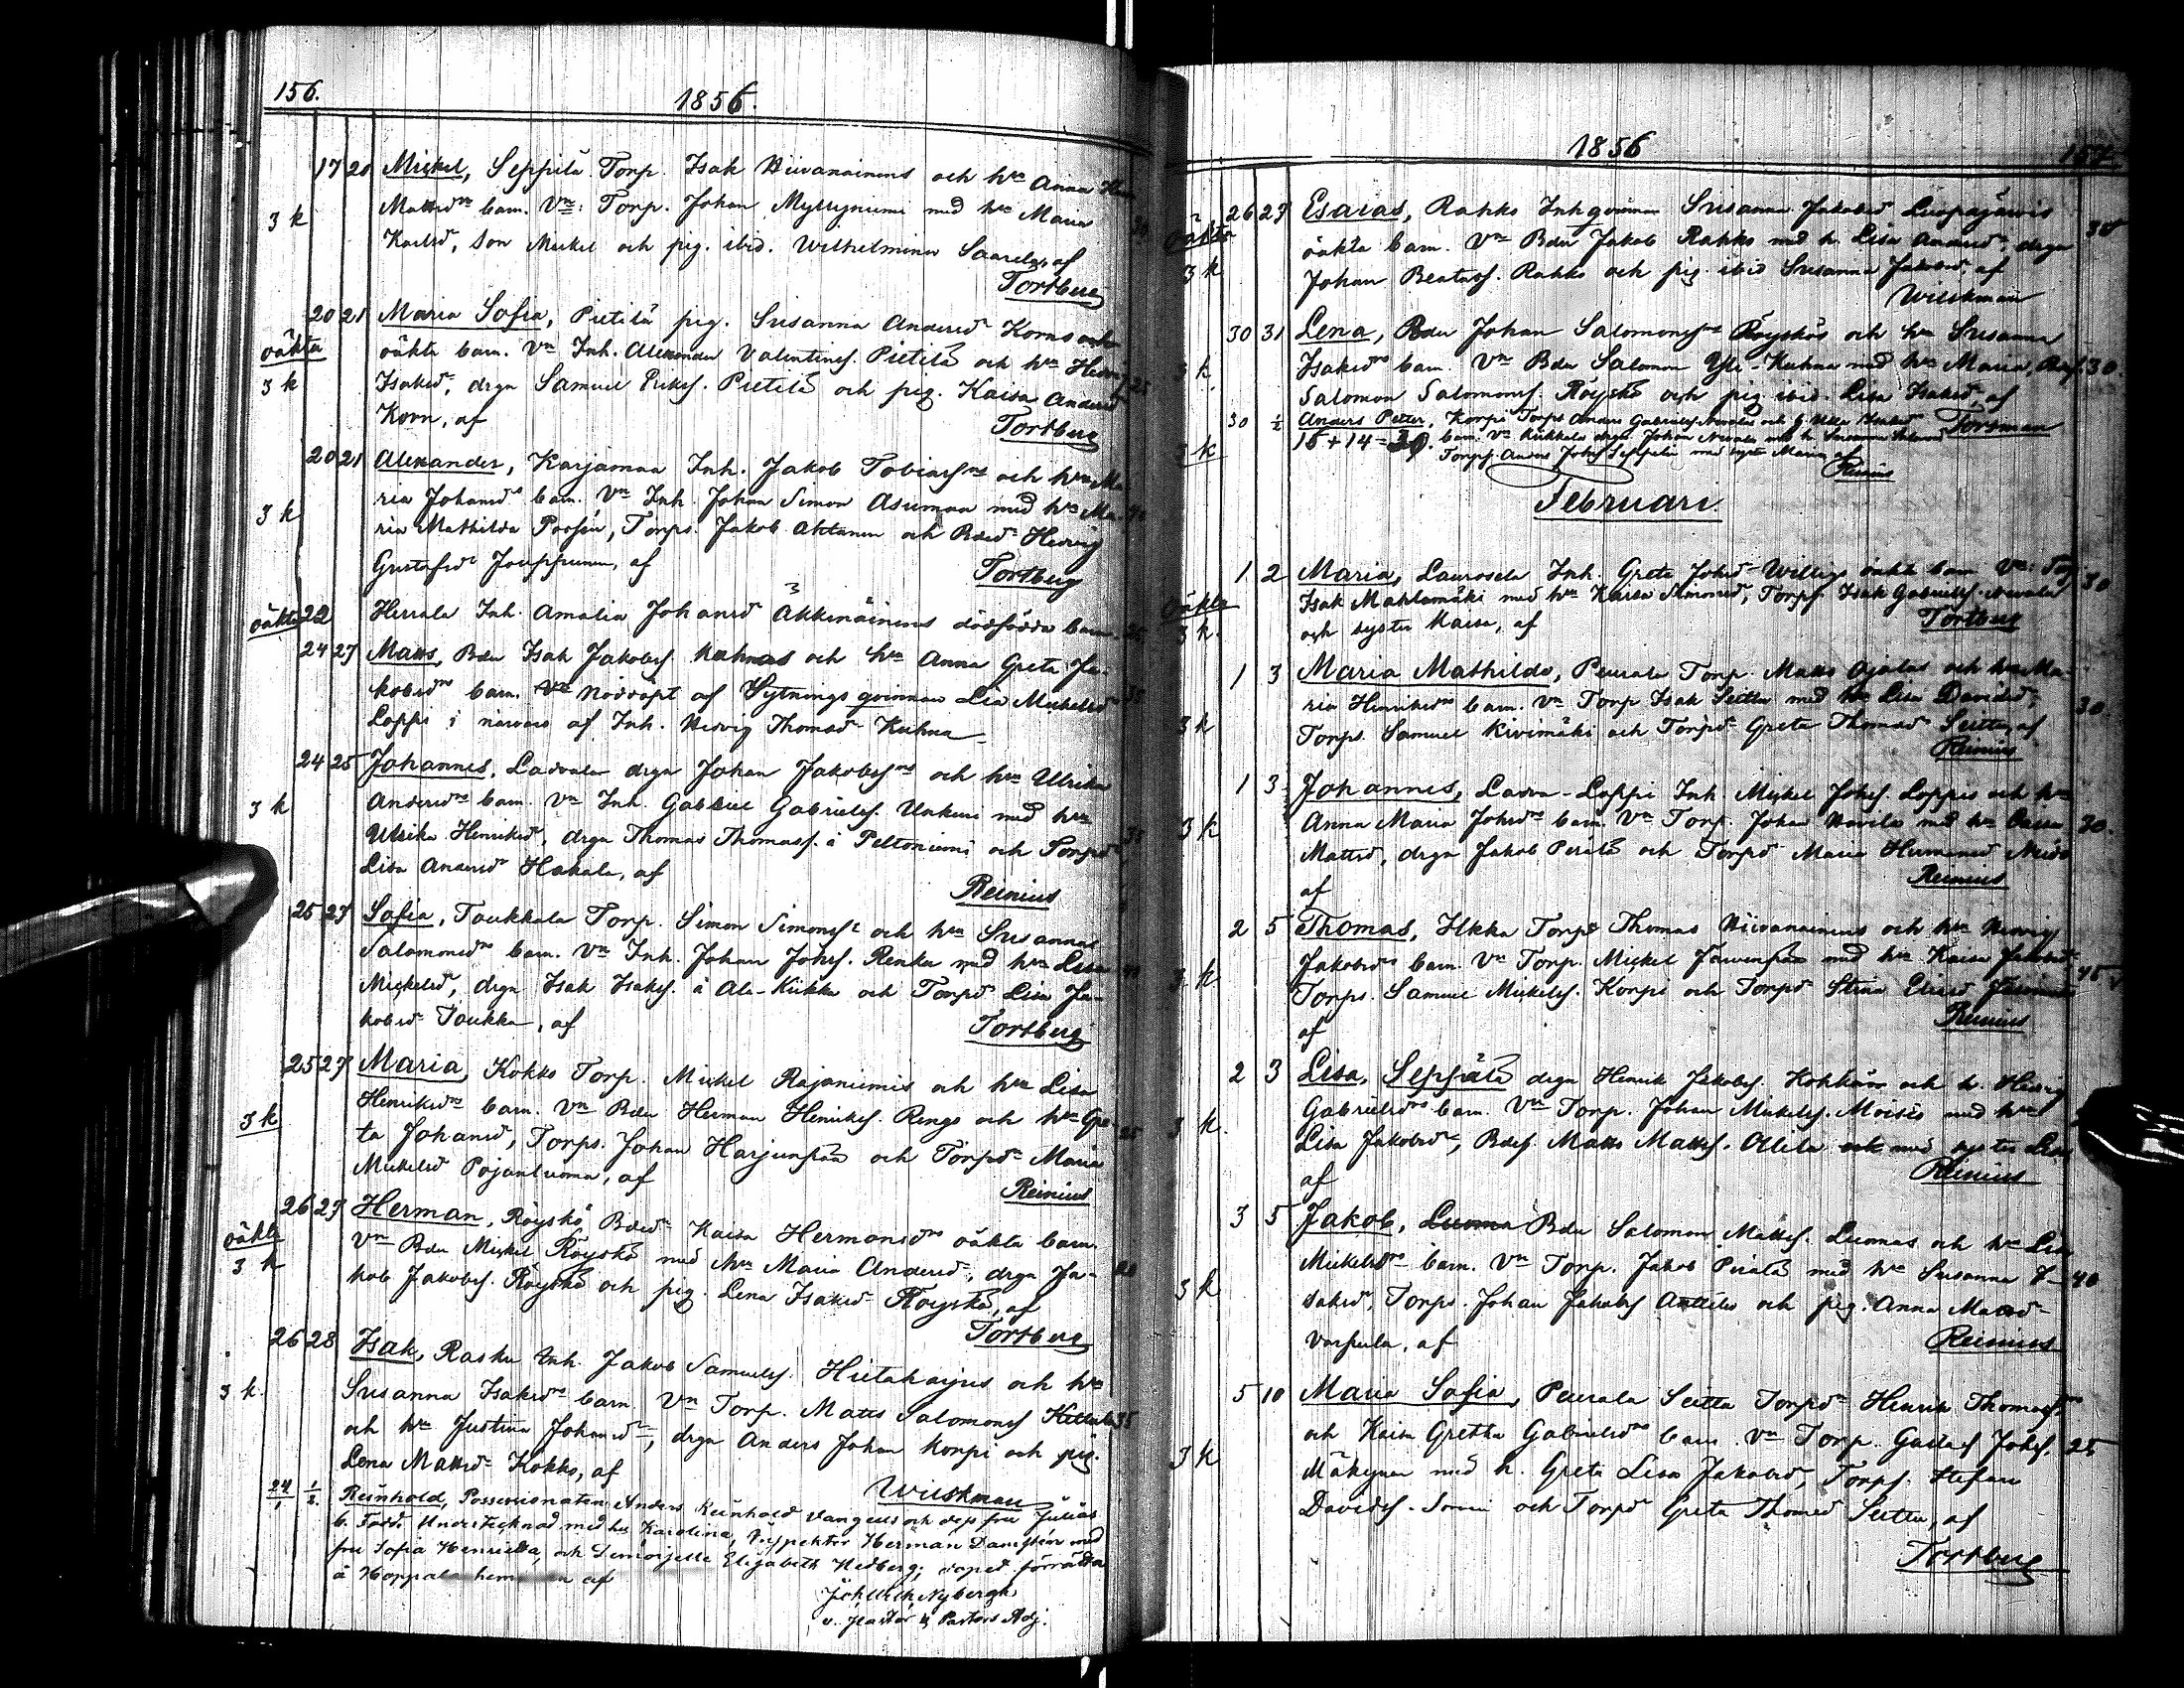 156.
1856.
17 20 Mickel, Seppilä Torp. Isak Niivanainens och hru Anna
3 k Mattsdrs barn. Vn: Torp. Johan Myllyniemi med hru Maria
Karlsd, son Mickel och pig. ibid. Wilhelmina Saarela, af
Tortberg
20 21 Maria Sofia, Pietilä pig. Susanna Andersdr Korns
oäkta oäkta barn. Vn Inh. Alexander Valentinss. Pietilä och hru Hedvig 25
3 k Isaksdr, drgn Samuel Eriks. Pietilä och pig. Kaisa Andersdr
Korn, af
Tortberg
20 21 Alexander, Karjamaa Inh. Jakob Tobiass och hru Ma
ria Johansdrs barn. Vn Inh. Johan Simon Asumaa med hru Ma-
3 k ria Mathilda, Torps. Jakob Ahtanen och Bdsd Hedvig
Gustafsdr, af
Tortberg
oäkta 22 Herrala Inh. Amalia Johansdr Äkkinäinens dödfödda barn. 25
24 27 Matts, Bdn Isak Jakobss. Kuhnas och hru Anna Greta Ja-
kobsdrs barn. Vn Nöddöpt af Sytningsqvinnan Lisa Mickelsdr 35
Loppi i närvaro af Inh. Hedvig Thomasdr Kuhna
24 25 Johannes, Ladvala drgn Johan Jakobss och hru Ulrika
3 k Andersdrs barn. Vn Inh. Gabriel Gabrielss. med hru
Ulrika Henriksd, drgn Thomas Thomass. å Peltoniemi och Torpsd
Lisa Andersdr Hakala, af
Reinius
25 27 Sofia, Toukkala Torp. Simon Simonss och hru Susanna
Salomonsdrs barn. Vn Inh. Johan Johss. Renko med hru Lisa
Mickelsd, drgn Isak Isaks. å Ala-Kiikka och Torpsd Lisa Ja-
kobsdr Toukka, af
Tortberg
25 27 Maria, Kokko Torp. Mickel Rajaniemis och hru Lisa
3 k Henriksdrs barn. Vn Bdn Herman Henrikss. Rengo och hru Gre 25
ta Johansd, Torps. Johan Harjunpää och Torpsdr Maria
Mickelsd Pojanluoma, af
Reinius
26 27 Herman, Röyskö Bdsdr Kaisa Hermansdrs oäkta barn.
oäkta Vn Bdn Mickel Röyskö med hru Maria Andersdr, drgn Ja-
3 k kob Jakobss. Röyskö och pig. Lena Isaksdr Röyskö, af
Tortberg
26 28 Isak, Rasku Inh. Jakob Samuelss. Hietaharjus och hru
3 k Susanna Isaksdrs barn. Vn Torp. Matts Salomonss 35
och hru Justina Johansdr, drgn Anders Johan Korpi och pig.
Lena Mattsdr Kokko, af
Wieskman
24/1 1/2. Reinhold, Possessionaten Anders Reinhold Wangels och dess fru Julias
b. Fadd: Undertecknad med hu Karolina, Inspektor Herman med
fru Sofia Henrietta, och Demoiselle Elisabeth Hedberg; dopet förrättadt
å Hoppala hem af
Joh. Ulrik Nybergh
v. pastor & Pastors Adj.
1856
157
26 27 Esaias, Rahko Inhqvinnan Susanna Jakobsd Luopajärvis
oäkta oäkta barn. Vn Bdn Jakob Rahko med h. Lisa Andersdr, drgn 30
3 k Johan Beatass. Rahko och pig. ibid Susanna Jakobsd, af
Wieskman
30 31 Lena, Bdn Johan Salomonss Röyskös och hru Susanna
3 k Isaksdrs barn. Vn Bdn Salomon Yli-Kuhna med hru Maria, Bdss. 30
Salomon Salomonss. Röyskö och pig. ibid. Lisa Isaksd, af
Forsman
30 1/2 Anders Petter, Korpi Torps Anders Gabrielss Nevalas och h Ulla Isaksdr
3 k barn. Vn Kiikkala drgn Johan Nevala med h. Susanna
15+14=29. Torpss. Anders Johss Seppelin med syster Maria, af
Reinius
Februari
1 2 Maria, Laurosela Inh. Greta Johsd Willigs oäkta barn Vn: Torp 30
oäkta Isak Mahlamäki med hru Kaisa Simonsd, Torpss. Isak Gabrielss. Nevala
3 k. och syster Kaisa, af
Tortberg
1 3 Maria Mathilda, Peurala Torp. Matts Ojalas och hru Ma-
ria Henriksdrs barn. Vn Torp Isak Seittu med hru Lisa Davidsd, 30
3 k Torps. Samuel Kivimäki och Torpsdr Greta Thomasdr Seittu, af
Reinius
1 3 Johannes, Ladva-Loppi Inh. Mickel Johss. Loppis och hru
3 k Anna Maria Johsdrs barn. Vn Torp. Johan Havila med hru Caisa 30.
Mattsd, drgn Jakob Perälä och Torpsd Maria Hermansd
af
Reinius
2 5 Thomas, Ilkka Torps Thomas Niivanainens och hru Hedvig
3 k Jakobsdrs barn. Vn Torp. Mickel Järvenpää med hru Kaisa Jakobsd 45
Torps. Samuel Mickelss. Korpi och Torpsd Stina Eliasd
af
Reinius
2 3 Lisa, Seppälä drgn Henrik Jakobss. och h. Hedvig
3 k. Gabrielsdrs barn. Vn Torp. Johan Mickelss. Moisio med hru
Lisa Jakobsdr, Bdss. Matts Mattss. Ollila och med syster Lisa
af
Reinius
3 5 Jakob, Luoma Bdn Salomon Mattss. Luomas och hru Lisa
Mickelsdrs barn. Vn Torp. Jakob Perälä med hru Susanna I- 40
3 k saksd, Torps. Johan Jakobss Anttila och pig. Anna Mattsdr
Varpula, af
Reinius
5 10 Maria Sofia, Peurala Seittu Torpsdr Henrik Thomass
och Kaisa Gretha Gabrielsdrs barn. Vn Torp. Gustaf Johss. 25
3 k Mäkynen med h. Greta Lisa Jakobsd, Torps. Stefan
Davidss. Sonni och Torpsd Greta Thomasd Seittu, af
Tortberg